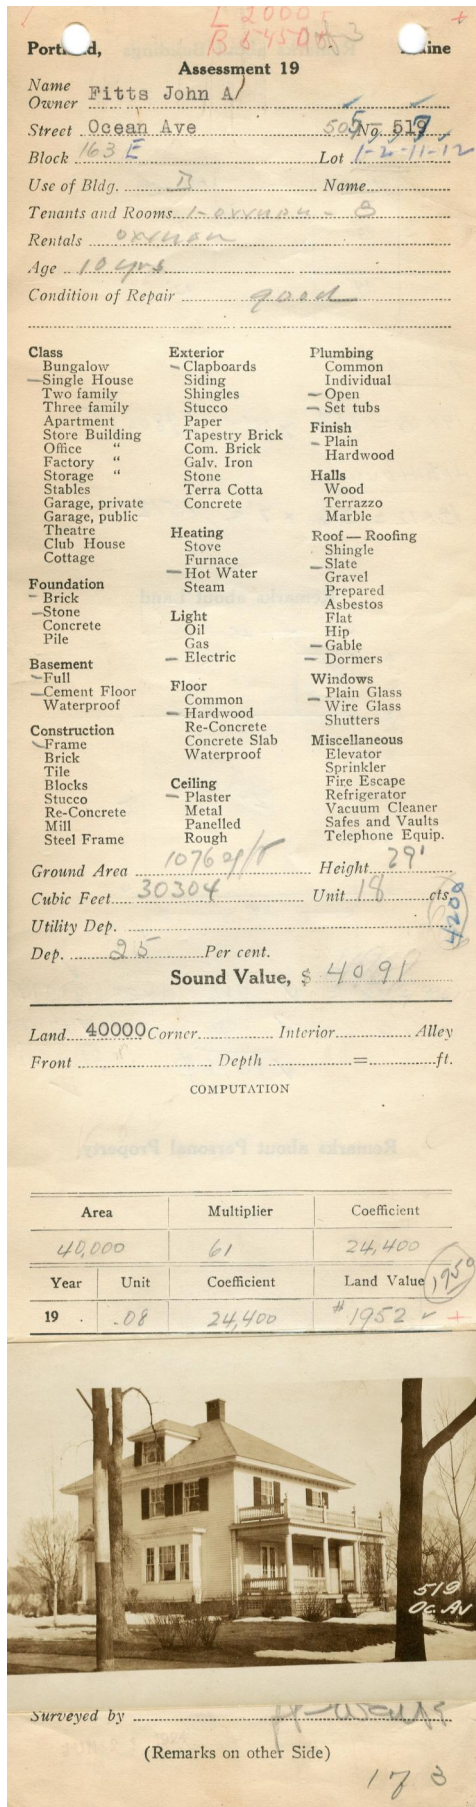 L 2000 +
B 5450
Portland, Maine
Assessment 19
Name
Owner Fitts John A
Street Ocean Ave 505 - No. 519
Block 163 E Lot 1-2-11-12
Use of Bldg. Name
Tenants and Rooms 1- - 8
Rentals
Age 10 yrs
Condition of Repair good
Class
Bungalow
Single House
Two family
Three family
Apartment
Store Building
Office "
Factory "
Storage "
Stables
Garage, private
Garage, public
Theatre
Club House
Cottage
Foundation
Brick
Stone
Concrete
Pile
Basement
Full
Cement Floor
Waterproof
Construction
Frame
Brick
Tile
Blocks
Stucco
Re-Concrete
Mill
Steel Frame
Exterior
Clapboards
Siding
Shingles
Stucco
Paper
Tapestry Brick
Com. Brick
Galv. Iron
Stone
Terra Cotta
Concrete
Heating
Stove
Furnace
Hot Water
Steam
Light
Oil
Gas
Electric
Floor
Common
Hardwood
Re-Concrete
Concrete Slab
Waterproof
Ceiling
Plaster
Metal
Panelled
Rough
Plumbing
Common
Individual
Open
Set tubs
Finish
Plain
Hardwood
Halls
Wood
Terrazzo
Marble
Roof — Roofing
Shingle
Slate
Gravel
Prepared
Asbestos
Flat
Hip
Gable
Dormers
Windows
Plain Glass
Wire Glass
Shutters
Miscellaneous
Elevator
Sprinkler
Fire Escape
Refrigerator
Vacuum Cleaner
Safes and Vaults
Telephone Equip.
Ground Area 1076 Height 29'
Cubic Feet 30304 Unit 18 cts.
4200
Utility Dep.
Dep. 25 Per cent.
Sound Value, $ 4091
Land 40000 Corner Interior Alley
Front Depth = ft.
COMPUTATION
Area Multiplier Coefficient
40,000 61 24,400
Year Unit Coefficient Land Value 1950
19 .08 24,400 #1952 +
519
Oc. Av
Surveyed by
(Remarks on other Side)
173